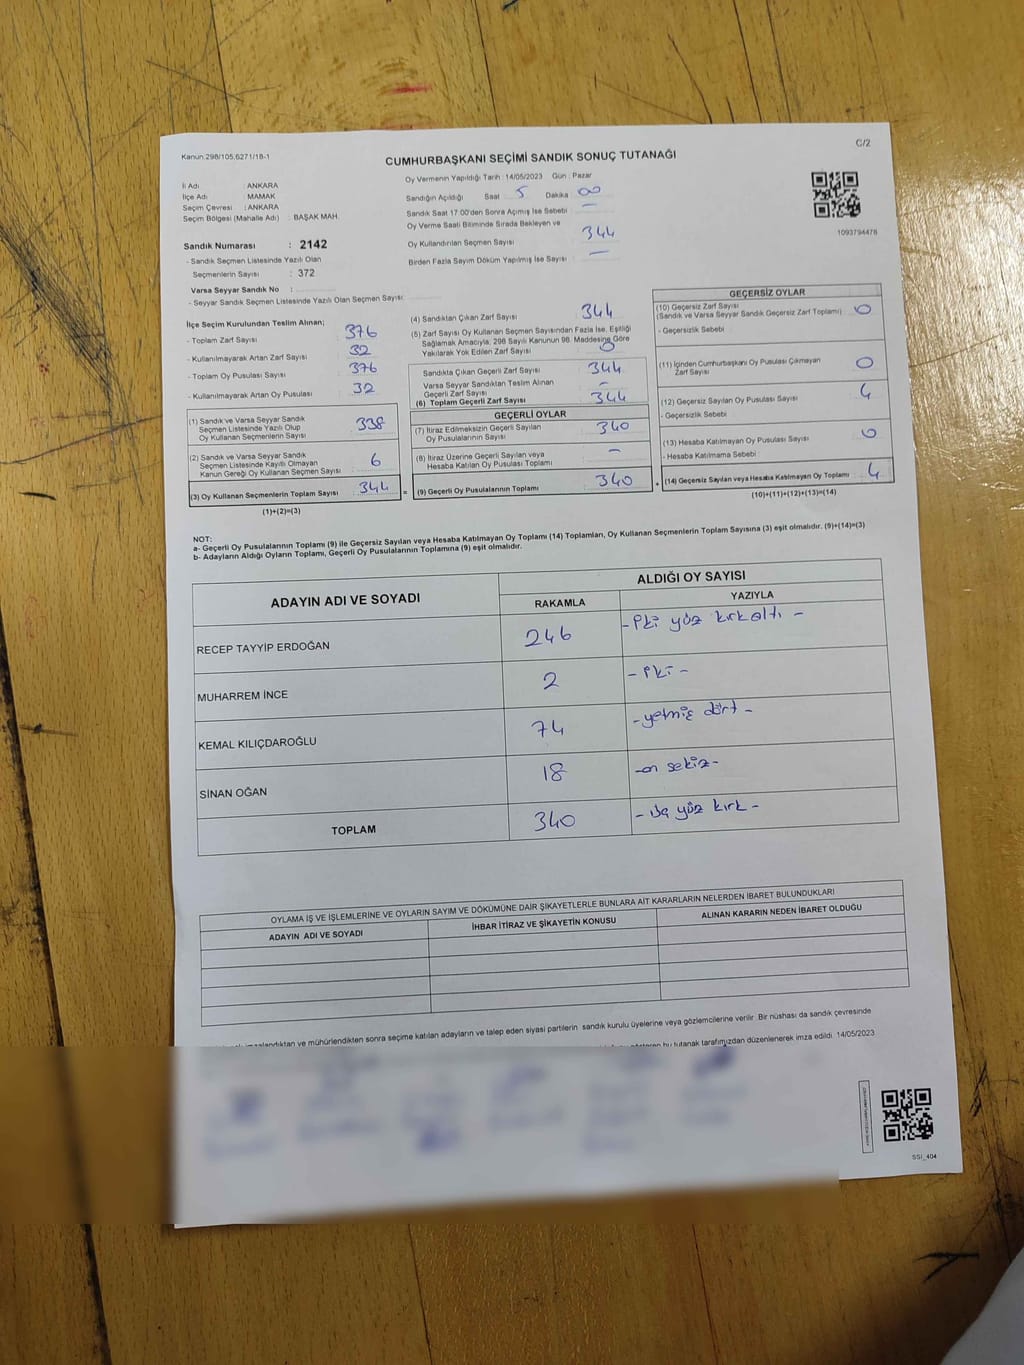 Kanun:298/105,6271/18-1
C/2
CUMHURBAŞKANI SEÇİMİ SANDIK SONUÇ TUTANAĞI
Oy Vermenin Yapıldığı Tarih : 14/05/2023 Gün : Pazar
İl Adı : ANKARA
İlçe Adı : MAMAK
Seçim Çevresi : ANKARA
Seçim Bölgesi (Mahalle Adı) : BAŞAK MAH.
Sandığın Açıldığı Saat 5 Dakika 00
Sandık Saat 17:00'den Sonra Açımış İse Sebebi : —
Oy Verme Saati Bitiminde Sırada Bekleyen ve
Oy Kullandırılan Seçmen Sayısı 344
Birden Fazla Sayım Döküm Yapılmış İse Sayısı : —
1093794478
Sandık Numarası : 2142
- Sandık Seçmen Listesinde Yazılı Olan
Seçmenlerin Sayısı : 372
Varsa Seyyar Sandık No :
- Seyyar Sandık Seçmen Listesinde Yazılı Olan Seçmen Sayısı:
İlçe Seçim Kurulundan Teslim Alınan;
- Toplam Zarf Sayısı : 376
- Kullanılmayarak Artan Zarf Sayısı : 32
- Toplam Oy Pusulası Sayısı : 376
- Kullanılmayarak Artan Oy Pusulası : 32
(1) Sandık ve Varsa Seyyar Sandık
Seçmen Listesinde Yazılı Olup
Oy Kullanan Seçmenlerin Sayısı : 338
(2) Sandık ve Varsa Seyyar Sandık
Seçmen Listesinde Kayıtlı Olmayan
Kanun Gereği Oy Kullanan Seçmen Sayısı : 6
(3) Oy Kullanan Seçmenlerin Toplam Sayısı : 344 =
(1)+(2)=(3)
(4) Sandıktan Çıkan Zarf Sayısı : 344
(5) Zarf Sayısı Oy Kullanan Seçmen Sayısından Fazla İse, Eşitliği
Sağlamak Amacıyla; 298 Sayılı Kanunun 98. Maddesine Göre
Yakılarak Yok Edilen Zarf Sayısı : 0
Sandıkta Çıkan Geçerli Zarf Sayısı : 344
Varsa Seyyar Sandıktan Teslim Alınan
Geçerli Zarf Sayısı : —
(6) Toplam Geçerli Zarf Sayısı : 344
GEÇERLİ OYLAR
(7) İtiraz Edilmeksizin Geçerli Sayılan
Oy Pusulalarının Sayısı : 340
(8) İtiraz Üzerine Geçerli Sayılan veya
Hesaba Katılan Oy Pusulası Toplamı : —
(9) Geçerli Oy Pusulalarının Toplamı : 340 +
GEÇERSİZ OYLAR
(10) Geçersiz Zarf Sayısı
(Sandık ve Varsa Seyyar Sandık Geçersiz Zarf Toplamı) : 0
- Geçersizlik Sebebi :
(11) İçinden Cumhurbaşkanı Oy Pusulası Çıkmayan
Zarf Sayısı : 0
(12) Geçersiz Sayılan Oy Pusulası Sayısı : 4
- Geçersizlik Sebebi :
(13) Hesaba Katılmayan Oy Pusulası Sayısı : 0
- Hesaba Katılmama Sebebi :
(14) Geçersiz Sayılan veya Hesaba Katılmayan Oy Toplamı : 4
(10)+(11)+(12)+(13)=(14)
NOT:
a- Geçerli Oy Pusulalarının Toplamı (9) ile Geçersiz Sayılan veya Hesaba Katılmayan Oy Toplamı (14) Toplamları, Oy Kullanan Seçmenlerin Toplam Sayısına (3) eşit olmalıdır. (9)+(14)=(3)
b- Adayların Aldığı Oyların Toplamı, Geçerli Oy Pusulalarının Toplamına (9) eşit olmalıdır.
ADAYIN ADI VE SOYADI
ALDIĞI OY SAYISI
RAKAMLA YAZIYLA
RECEP TAYYİP ERDOĞAN 246 - iki yüz kırkaltı -
MUHARREM İNCE 2 - iki -
KEMAL KILIÇDAROĞLU 74 - yetmiş dört -
SİNAN OĞAN 18 - on sekiz -
TOPLAM 340 - üç yüz kırk -
OYLAMA İŞ VE İŞLEMLERİNE VE OYLARIN SAYIM VE DÖKÜMÜNE DAİR ŞİKAYETLERLE BUNLARA AİT KARARLARIN NELERDEN İBARET BULUNDUKLARI
ADAYIN ADI VE SOYADI İHBAR İTİRAZ VE ŞİKAYETİN KONUSU ALINAN KARARIN NEDEN İBARET OLDUĞU
ve mühürlendikten sonra seçime katılan adayların ve talep eden siyasi partilerin sandık kurulu üyelerine veya gözlemcilerine verilir. Bir nüshası da sandık çevresinde
bu tutanak tarafımızdan düzenlenerek imza edildi. 14/05/2023
SSİ_404